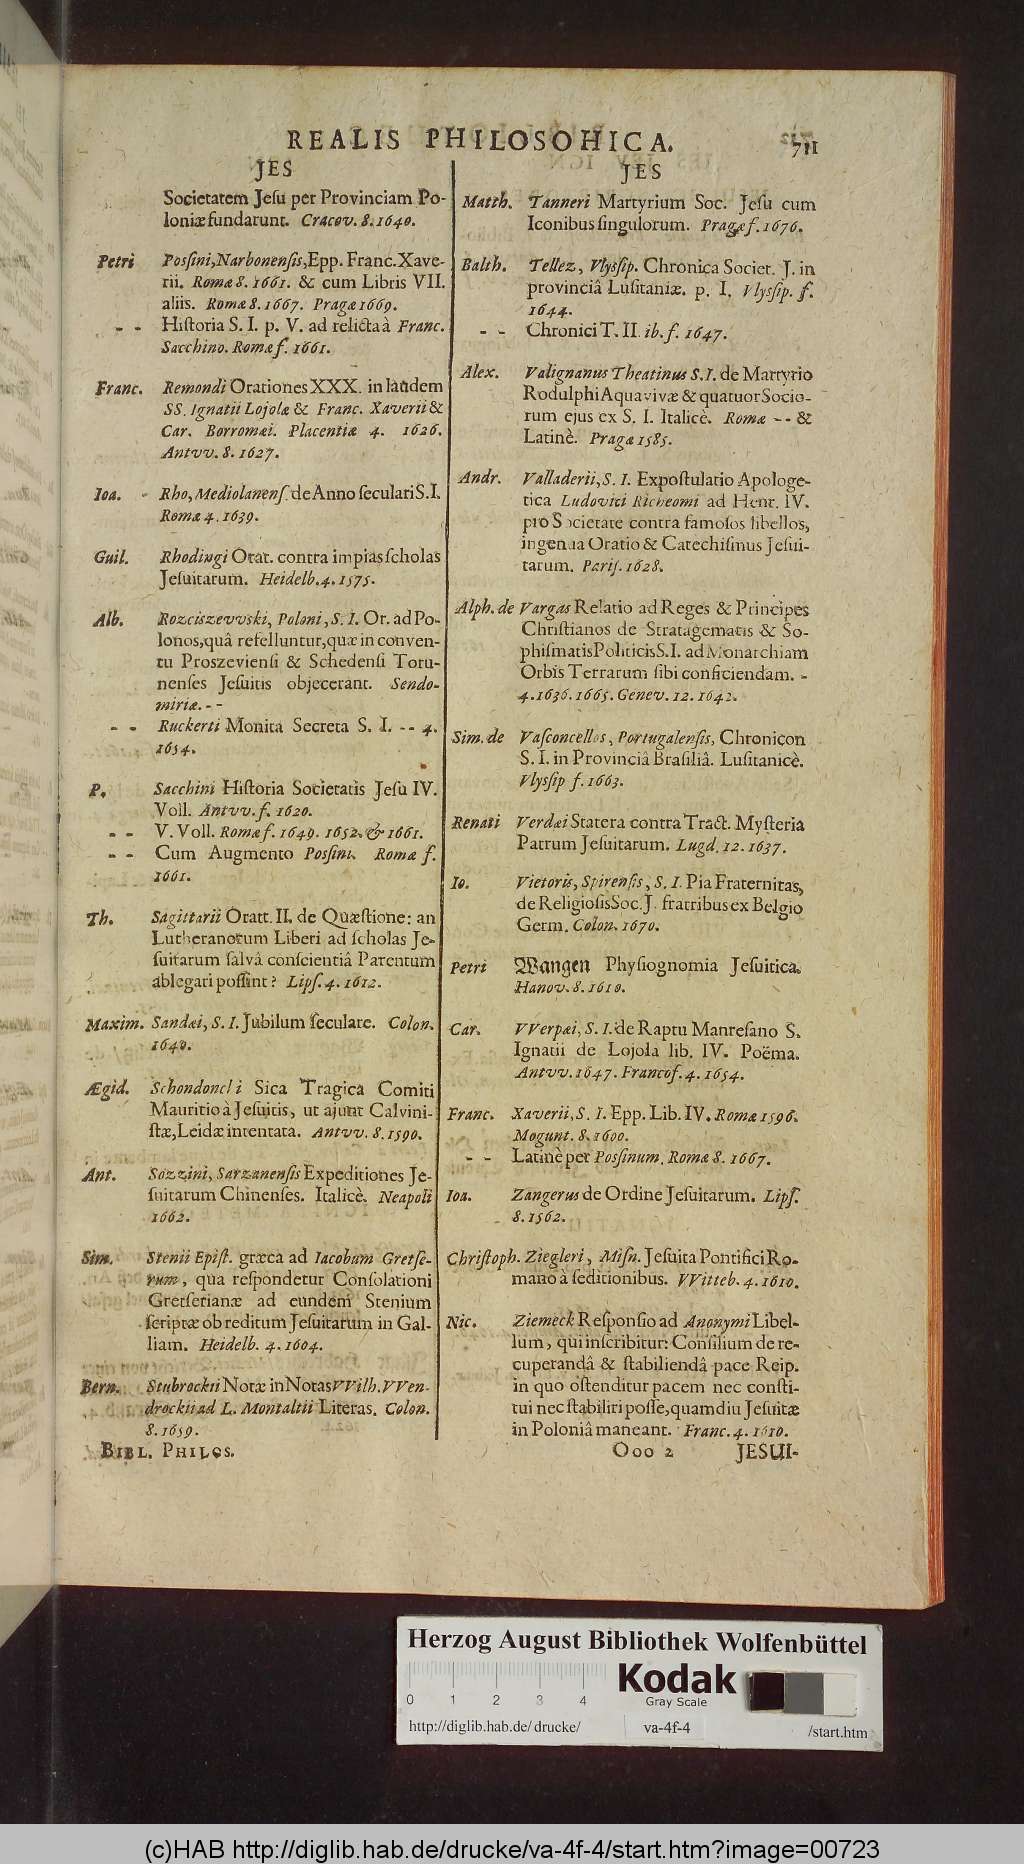 REALIS PHILOSOHICA. 711
JES
Societatem Jeſu per Provinciam Po-
loniæ fundarunt. Cracov. 8. 1640.
Petri Poſſini, Narbonenſis, Epp. Franc. Xave-
rii. Romæ 8. 1661. & cum Libris VII.
aliis. Romæ 8. 1667. Pragæ 1669.
- - Hiſtoria S. I. p. V. ad relicta à Franc.
Sacchino. Romæ f. 1661.
Franc. Remondi Orationes XXX. in laudem
SS. Ignatii Lojolæ & Franc. Xaverii &
Car. Borromæi. Placentiæ 4. 1626.
Antvv. 8. 1627.
Ioa. - Rho, Mediolanenſ. de Anno ſeculari S. I.
Romæ 4. 1639.
Guil. Rhodingi Orat. contra impias ſcholas
Jeſuitarum. Heidelb. 4. 1575.
Alb. Rozciszevvski, Poloni, S. I. Or. ad Po-
lonos, quâ refelluntur, quæ in conven-
tu Proszevienſi & Schedenſi Toru-
nenſes Jeſuitis objecerant. Sendo-
miriæ. - -
- - Ruckerti Monita Secreta S. I. -- 4.
1654.
P. Sacchini Hiſtoria Societatis Jeſu IV.
Voll. Antvv. f. 1620.
- - V. Voll. Romæ f. 1649. 1652. & 1661.
- - Cum Augmento Poſſini. Romæ f.
1661.
Th. Sagittarii Oratt. II. de Quæſtione: an
Lutheranorum Liberi ad ſcholas Je-
ſuitarum ſalvâ conſcientiâ Parentum
ablegari poſſint? Lipſ. 4. 1612.
Maxim. Sandæi, S. I. Jubilum ſeculare. Colon.
1640.
Ægid. Schondoncli Sica Tragica Comiti
Mauritio à Jeſuitis, ut ajunt Calvini-
ſtæ, Leidæ intentata. Antvv. 8. 1590.
Ant. Sozzini, Sarzanenſis Expeditiones Je-
ſuitarum Chinenſes. Italicè. Neapoli
1662.
Sim. Stenii Epiſt. græca ad Iacobum Gretſe-
rum, qua reſpondetur Conſolationi
Gretſerianæ ad eundem Stenium
ſcriptæ ob reditum Jeſuitarum in Gal-
liam. Heidelb. 4. 1604.
Bern. Stubrockii Notæ in Notas VVilh. VVen-
drockii ad L. Montaltii Literas. Colon.
8. 1659.
BIBL. PHILOS.
JES
Matth. Tanneri Martyrium Soc. Jeſu cum
Iconibus ſingulorum. Pragæ f. 1676.
Balth. Tellez, Vlyſſip. Chronica Societ. J. in
provinciâ Luſitaniæ. p. I. Vlyſſip. f.
1644.
- - Chronici T. II. ib. f. 1647.
Alex. Valignanus Theatinus S. I. de Martyrio
Rodulphi Aquavivæ & quatuor Socio-
rum ejus ex S. I. Italicè. Romæ -- &
Latinè. Pragæ 1585.
Andr. Valladerii, S. I. Expoſtulatio Apologe-
tica Ludovici Richeomi ad Henr. IV.
pro Societate contra famoſos libellos,
ingenua Oratio & Catechiſmus Jeſui-
tarum. Pariſ. 1628.
Alph. de Vargas Relatio ad Reges & Principes
Chriſtianos de Stratagematis & So-
phiſmatis Politicis S. I. ad Monarchiam
Orbis Terrarum ſibi conficiendam. -
4. 1636. 1665. Genev. 12. 1642.
Sim. de Vaſconcellos, Portugalenſis, Chronicon
S. I. in Provinciâ Braſiliâ. Luſitanicè.
Vlyſſip f. 1663.
Renati Verdæi Statera contra Tract. Myſteria
Patrum Jeſuitarum. Lugd. 12. 1637.
Io. Vietoris, Spirenſis, S. I. Pia Fraternitas,
de Religioſis Soc. J. fratribus ex Belgio
Germ. Colon. 1670.
Petri Wangen Phyſiognomia Jeſuitica.
Hanov. 8. 1610.
Car. VVerpæi, S. I. de Raptu Manreſano S.
Ignatii de Lojola lib. IV. Poëma.
Antvv. 1647. Francof. 4. 1654.
Franc. Xaverii, S. I. Epp. Lib. IV. Romæ 1596.
Mogunt. 8. 1600.
- - Latinè per Poſſinum. Romæ 8. 1667.
Ioa. Zangerus de Ordine Jeſuitarum. Lipſ.
8. 1562.
Chriſtoph. Ziegleri, Miſn. Jeſuita Pontifici Ro-
mano à ſeditionibus. VVitteb. 4. 1610.
Nic. Ziemeck Reſponſio ad Anonymi Libel-
lum, qui inſcribitur: Conſilium de re-
cuperandâ & ſtabiliendâ pace Reip.
in quo oſtenditur pacem nec conſti-
tui nec ſtabiliri poſſe, quamdiu Jeſuitæ
in Poloniâ maneant. Franc. 4. 1610.
Ooo 2 JESUI-
Herzog August Bibliothek Wolfenbüttel
0 1 2 3 4
Kodak
Gray Scale
http://diglib.hab.de/drucke/ va-4f-4 /start.htm
(c)HAB http://diglib.hab.de/drucke/va-4f-4/start.htm?image=00723